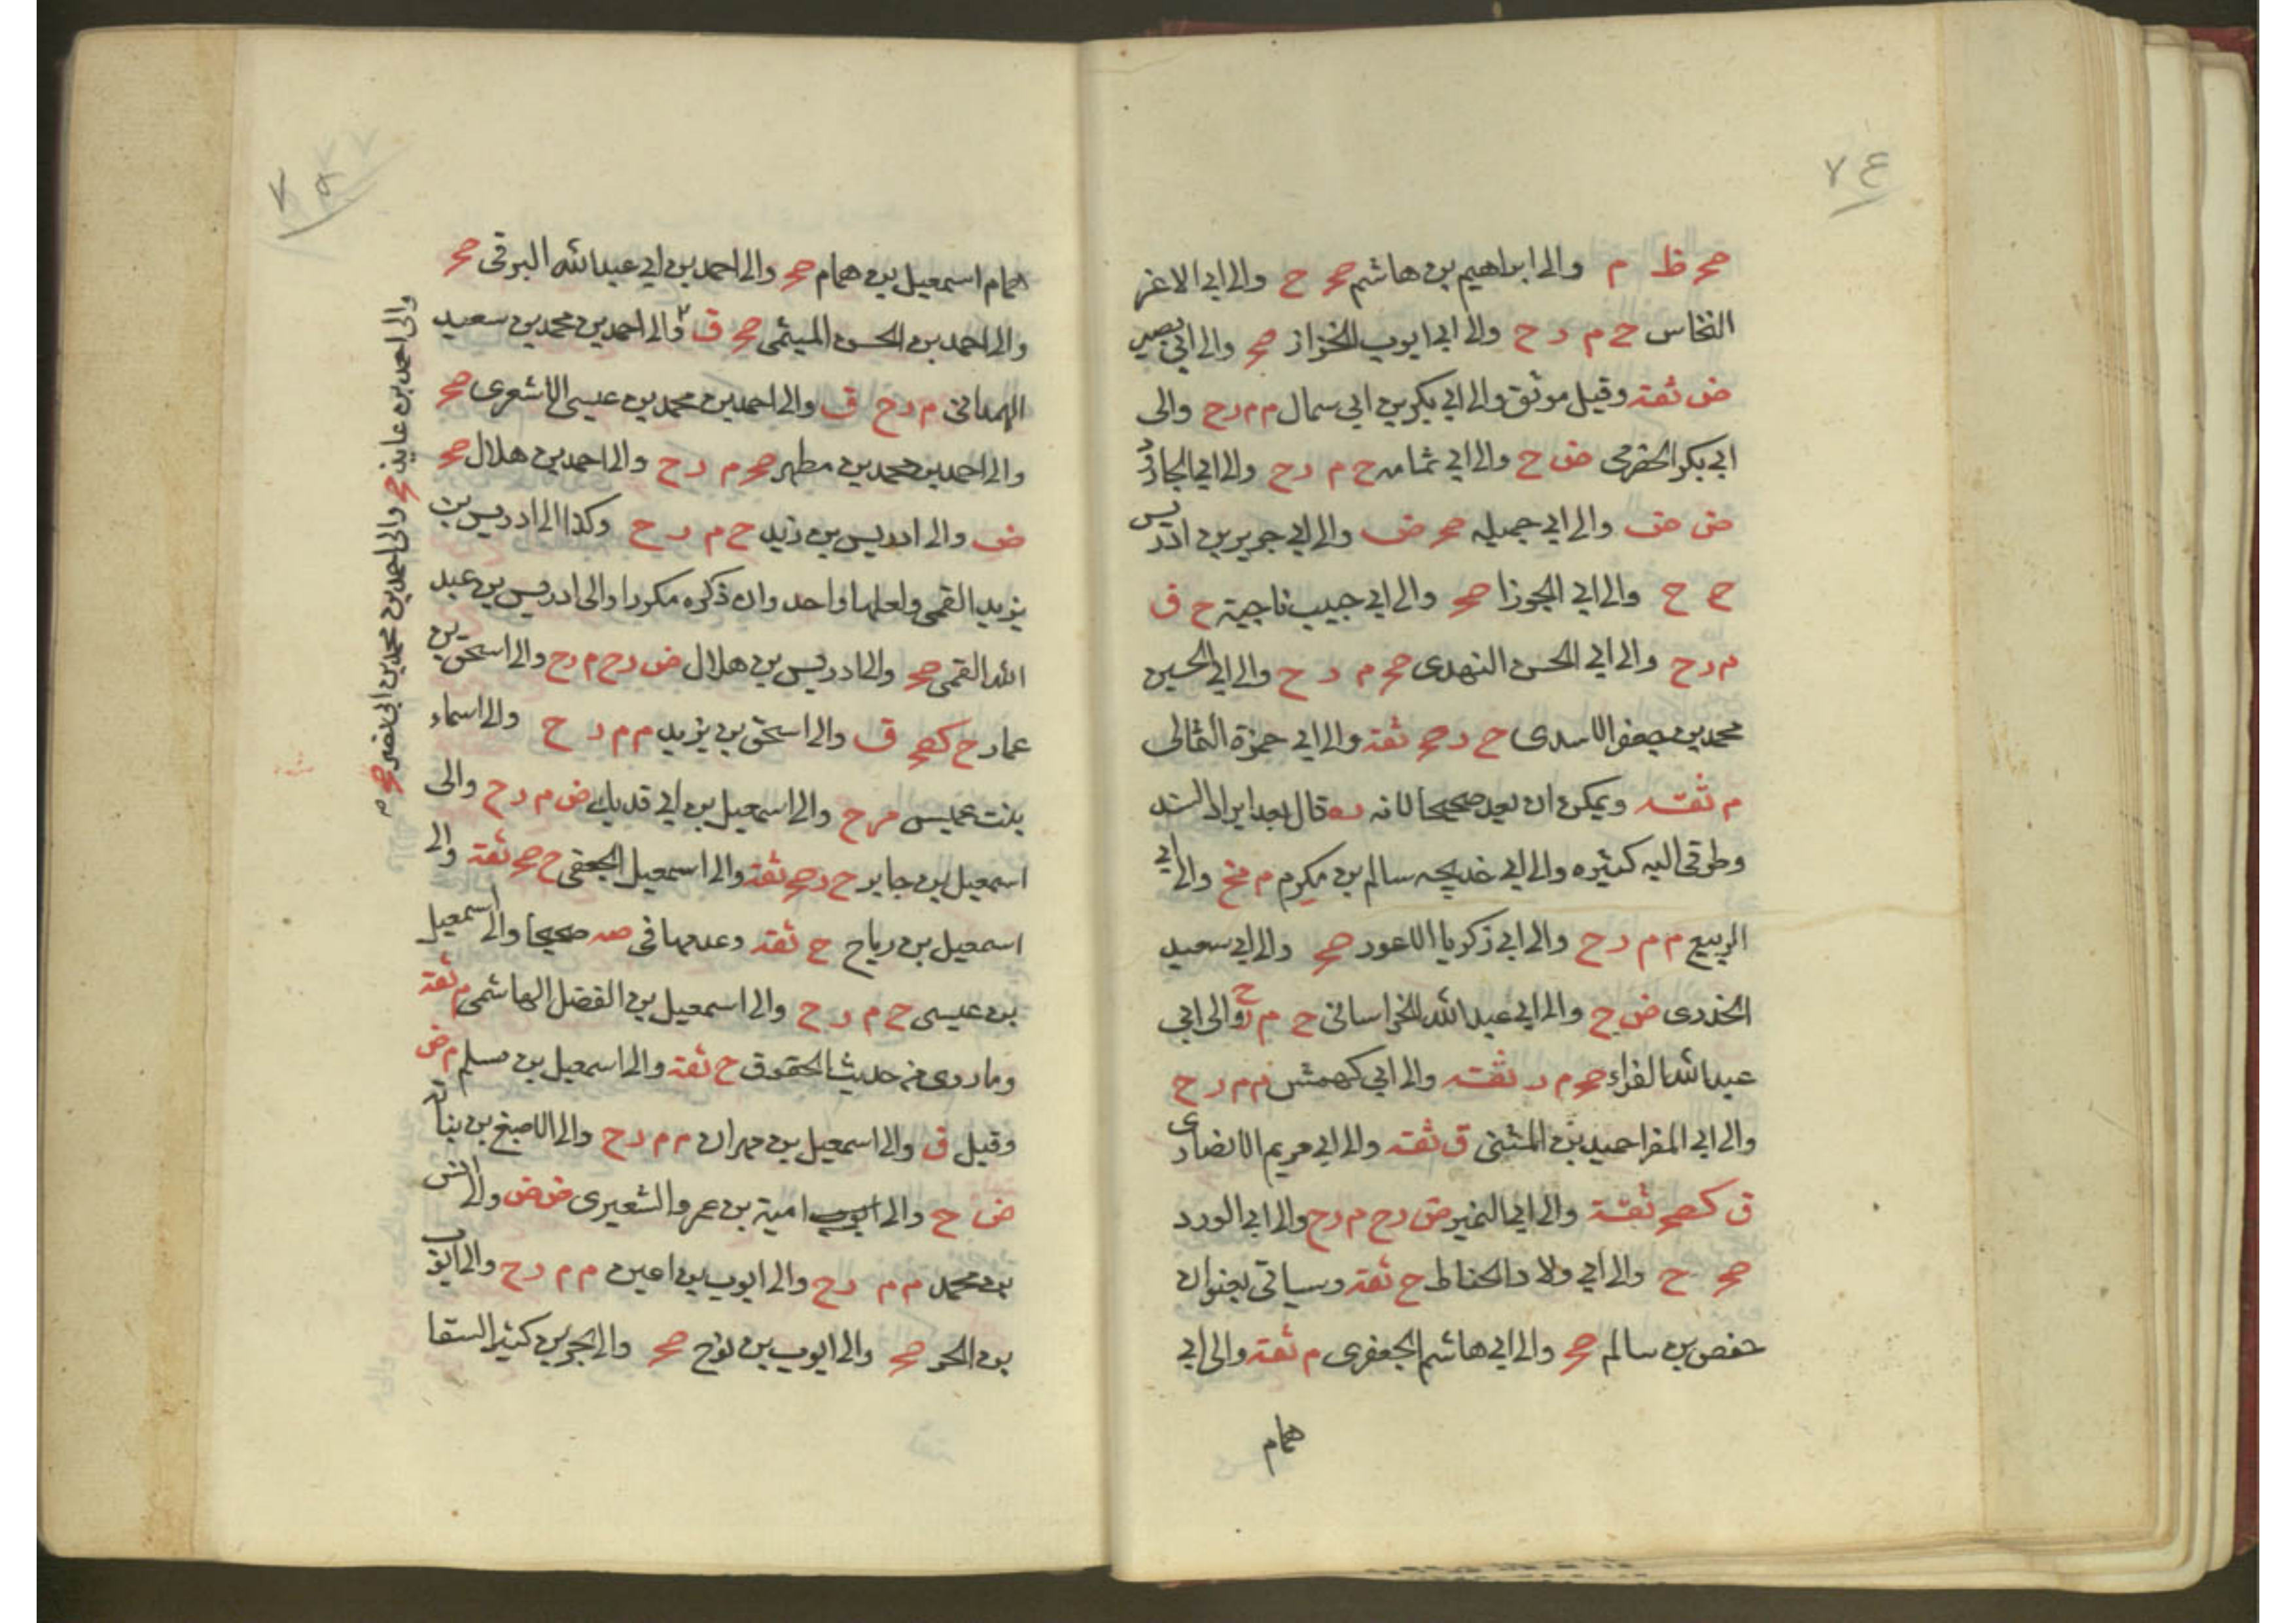 ٧٤
صح ظ م والى ابراهيم بن هاشم صح ح والى ابى الاغر
النخاس ح م ر ح والى ابى ايوب الخزاز صح والى ابى بصير
ض ثقة وقيل موثق والى ابى بكر بن ابى سمال م م ر ح والى
ابى بكر الحضرمى ض ح والى ابى ثمامه ح م ر ح والى ابى الجارود
ض ض والى ابى جميله صح ض والى ابى جرير بن ادريس
ح ح والى ابى الجوزا صح والى ابى حبيب ناجية ح ق
م ر ح والى ابى الحسن النهدى صح م ر ح والى ابى الحسين
محمد بن جعفر الاسدى ح ر صح ثقة والى ابى حمزة الثمالى
م ثقة ويمكن ان يعد صحيحا لانه ره قال بعد ايراد السند
وطرقى اليه كثيره والى ابى خديجه سالم بن مكرم م مخ والى ابى
الربيع م م ر ح والى ابى زكريا الاعور صح والى ابى سعيد
الخدرى ض ح والى ابى عبد الله الخراسانى ح م ر ح والى ابى
عبد الله الفراء صح م ر ثقة والى ابى كهمش م م ر ح
والى ابى المغرا حميد بن المثنى ق ثقة والى ابى مريم الانصارى
ق كصح ثقة والى ابى النمير ض ر ح م ر ح والى ابى الورد
صح ح والى ابى ولاد الحناط ح ثقة وسياتى بعنوان
حفص بن سالم صح والى ابى هاشم الجعفرى م ثقة والى ابى
همام
همام اسمعيل بن همام صح والى احمد بن ابى عبد الله البرقى صح
والى احمد بن الحسن الميثمى صح ق والى احمد بن محمد بن سعيد
الهمدانى م ر ح ق والى احمد بن محمد بن عيسى الاشعرى صح
والى احمد بن محمد بن مطهر صح م ر ح والى احمد بن هلال صح
ض والى ادريس بن زيد ح م ر ح وكذا الى ادريس بن
يزيد القمى ولعلهما واحد وان ذكره مكررا والى ادريس بن عبد
الله القمى صح والى ادريس بن هلال ض ر ح م ر ح والى اسحق بن
عمار ح كصح ق والى اسحق بن يزيد م م ر ح والى اسماء
بنت عميس م ر ح والى اسمعيل بن ابى فديك ض م ر ح والى
اسمعيل بن جابر ح ر صح ثقة والى اسمعيل الجعفى ح صح ثقة والى
اسمعيل بن رباح ح ثقة وعدهما فى صه صحيحا والى اسمعيل
بن عيسى ح م ر ح والى اسمعيل بن الفضل الهاشمى م ثقة
وما روى من حديث الحقوق ح ثقة والى اسمعيل بن مسلم م ض
وقيل ق والى اسمعيل بن مهران م م ر ح والى الاصبغ بن نباته
ض ح والى امية بن عمرو الشعيرى ض ض والى انس
بن محمد م م ر ح والى ايوب بن اعين م م ر ح والى ايوب
بن الحر صح والى ايوب بن نوح صح والى بحر بن كنيز السقا
والى احمد بن عايذ صح والى احمد بن محمد بن ابى نصر صح